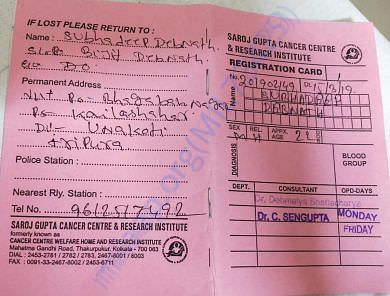 IF LOST PLEASE RETURN TO :
Name : Subhadeep Debnath
S/o Bijit Debnath
C/o Do
Permanent Address
Vill Po- Bhagaban nagar
Ps- Kailashahar
Dis- Unakoti
Tripura
Police Station :
Nearest Rly. Station :
Tel No.
SAROJ GUPTA CANCER CENTRE & RESEARCH INSTITUTE
formerly known as
CANCER CENTRE WELFARE HOME AND RESEARCH INSTITUTE
Mahatma Gandhi Road, Thakurpukur, Kolkata - 700 063
DIAL : 2453-2781 / 2782 / 2783, 2467-8001 / 8003
FAX : 0091-33-2467-8002 / 2453-6711
SAROJ GUPTA CANCER CENTRE
& RESEARCH INSTITUTE
REGISTRATION CARD
No.
SUBHADEEP
DEBNATH
SEX REL. APPX. AGE
M H
DIAGNOSIS
BLOOD GROUP
DEPT. CONSULTANT OPD-DAYS
Dr. Debmalya Bhattacharya
Dr. C. SENGUPTA MONDAY
FRIDAY